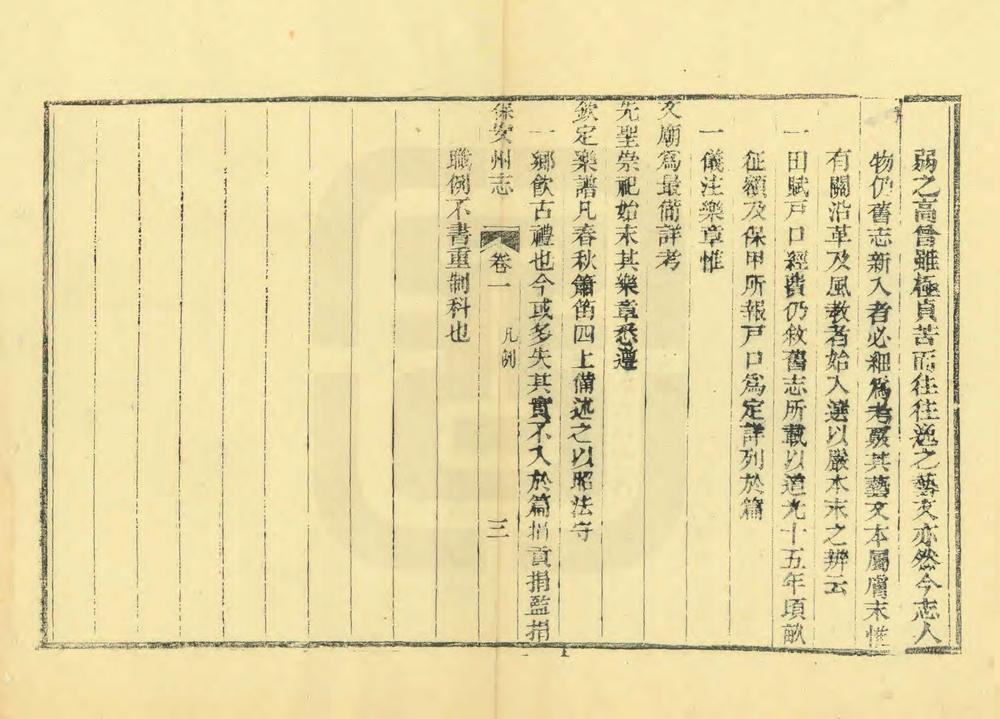 弱之高曾雖極貞苦而往往逸之藝文亦然今志人
物仍舊志新入者必細為考覈其藝文本屬膚末惟
有關沿革及風教者始入選以嚴本末之辨云
一田賦戸口經費仍敘舊志所載以道光十五年頃畝
征額及保甲所報戸口為定詳列於篇
一儀注樂章惟
文廟為最備詳考
先聖崇祀始末其樂章悉遵
欽定樂譜凡春秋簫笛四上備述之以昭法守
一鄉飲古禮也今或多失其實不入於篇捐貢捐監捐
保安州志 卷一 凡例 三
職例不書重制科也